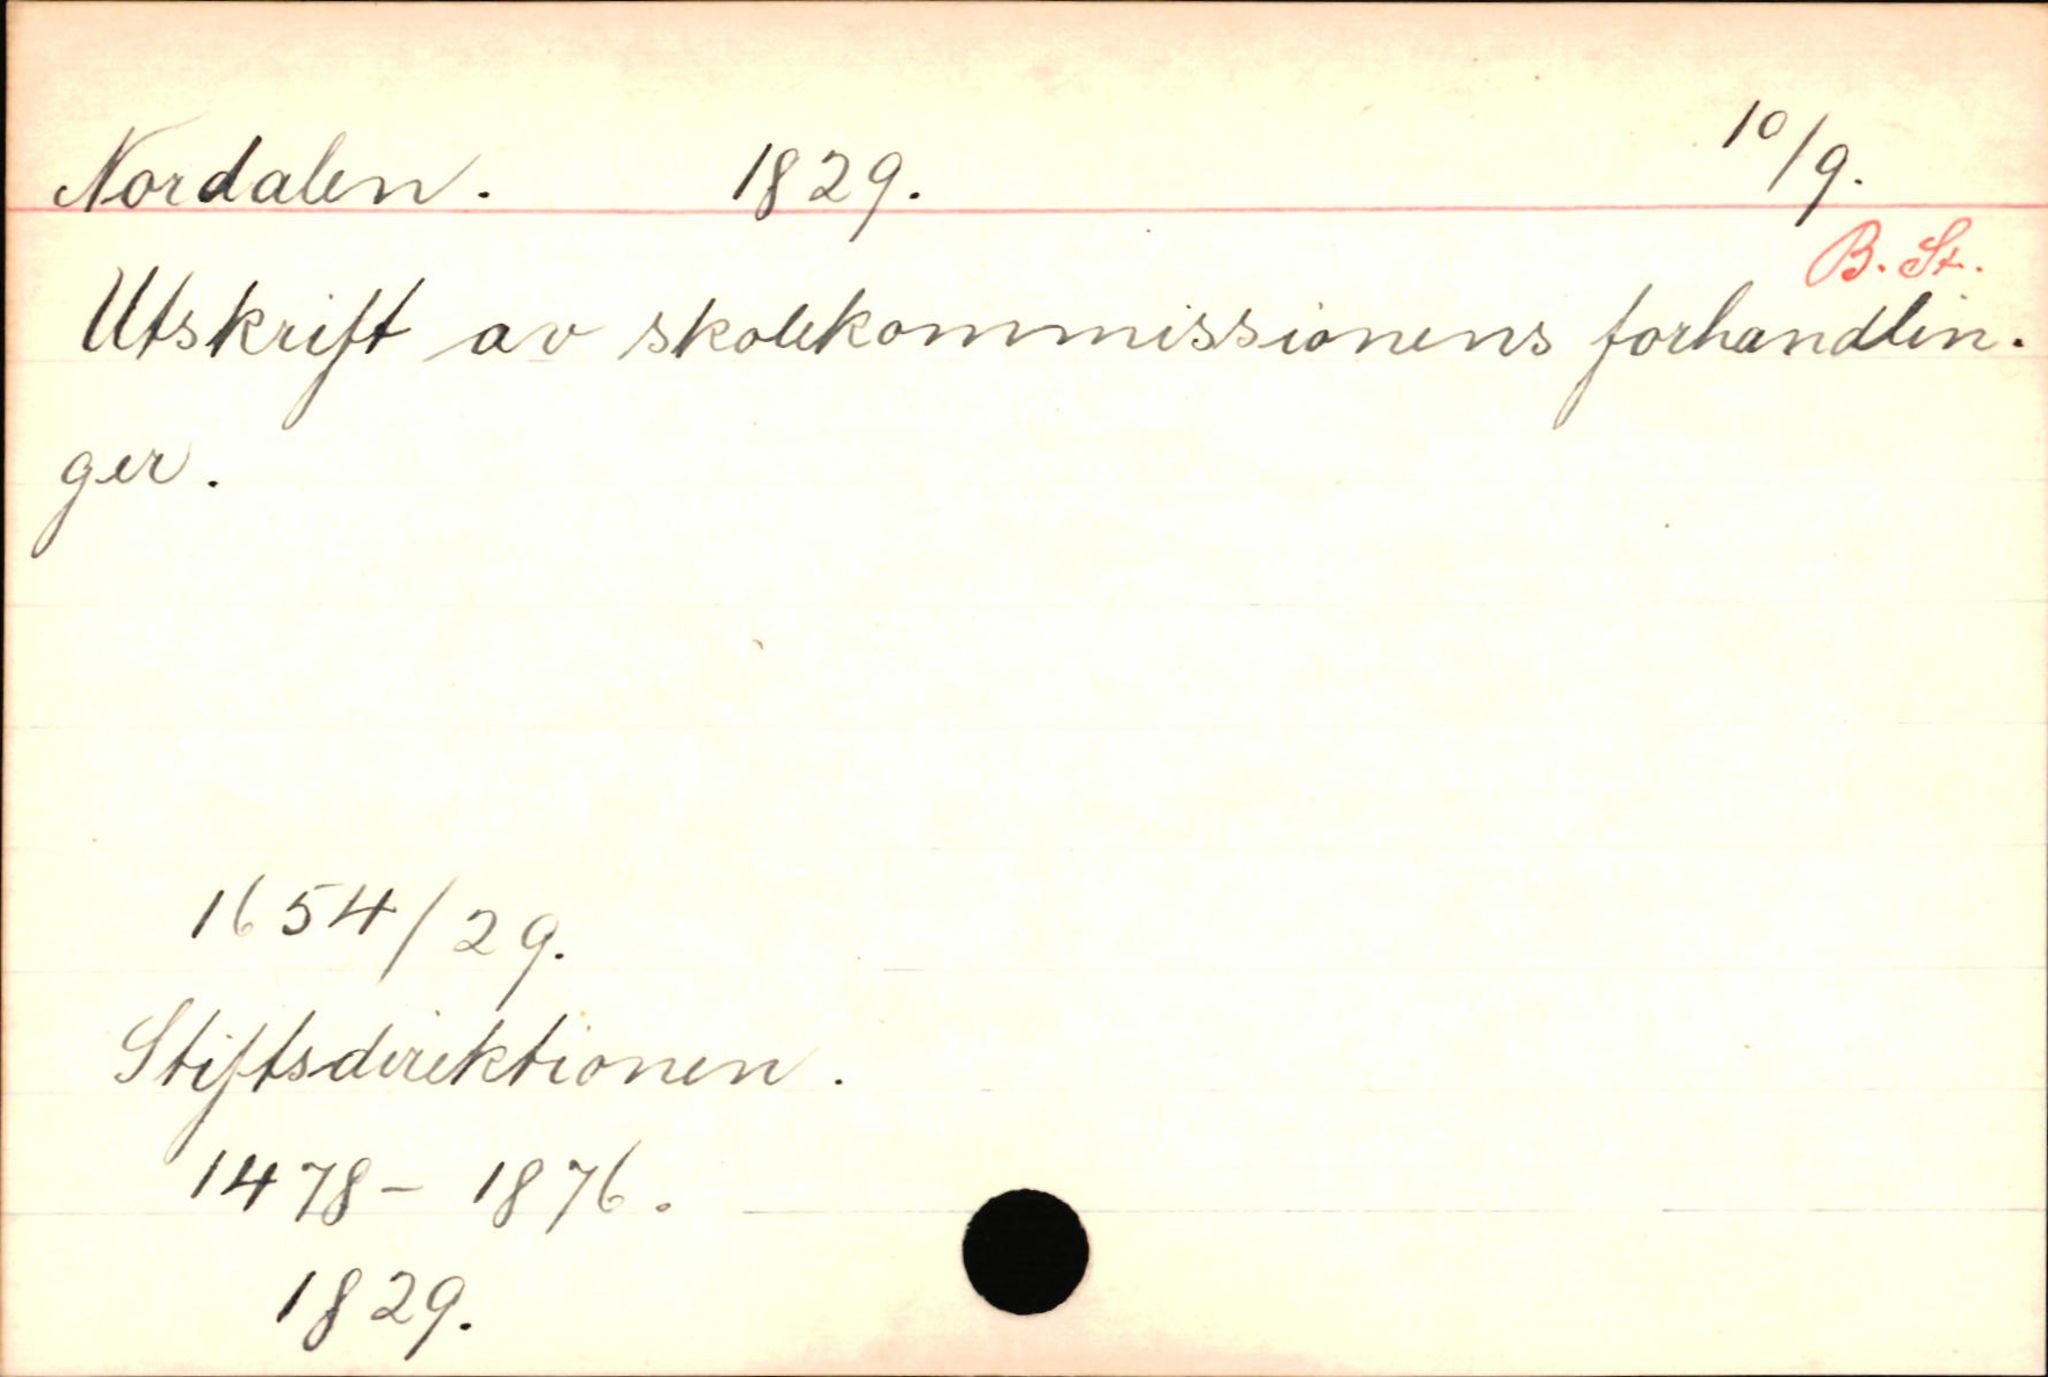 Nordalen. 1829. 10/9.
B. St.
Utskrift av skolekommissionens forhandlin-
ger.
1654/29.
Stiftsdirektionen.
1478- 1876.
1829.